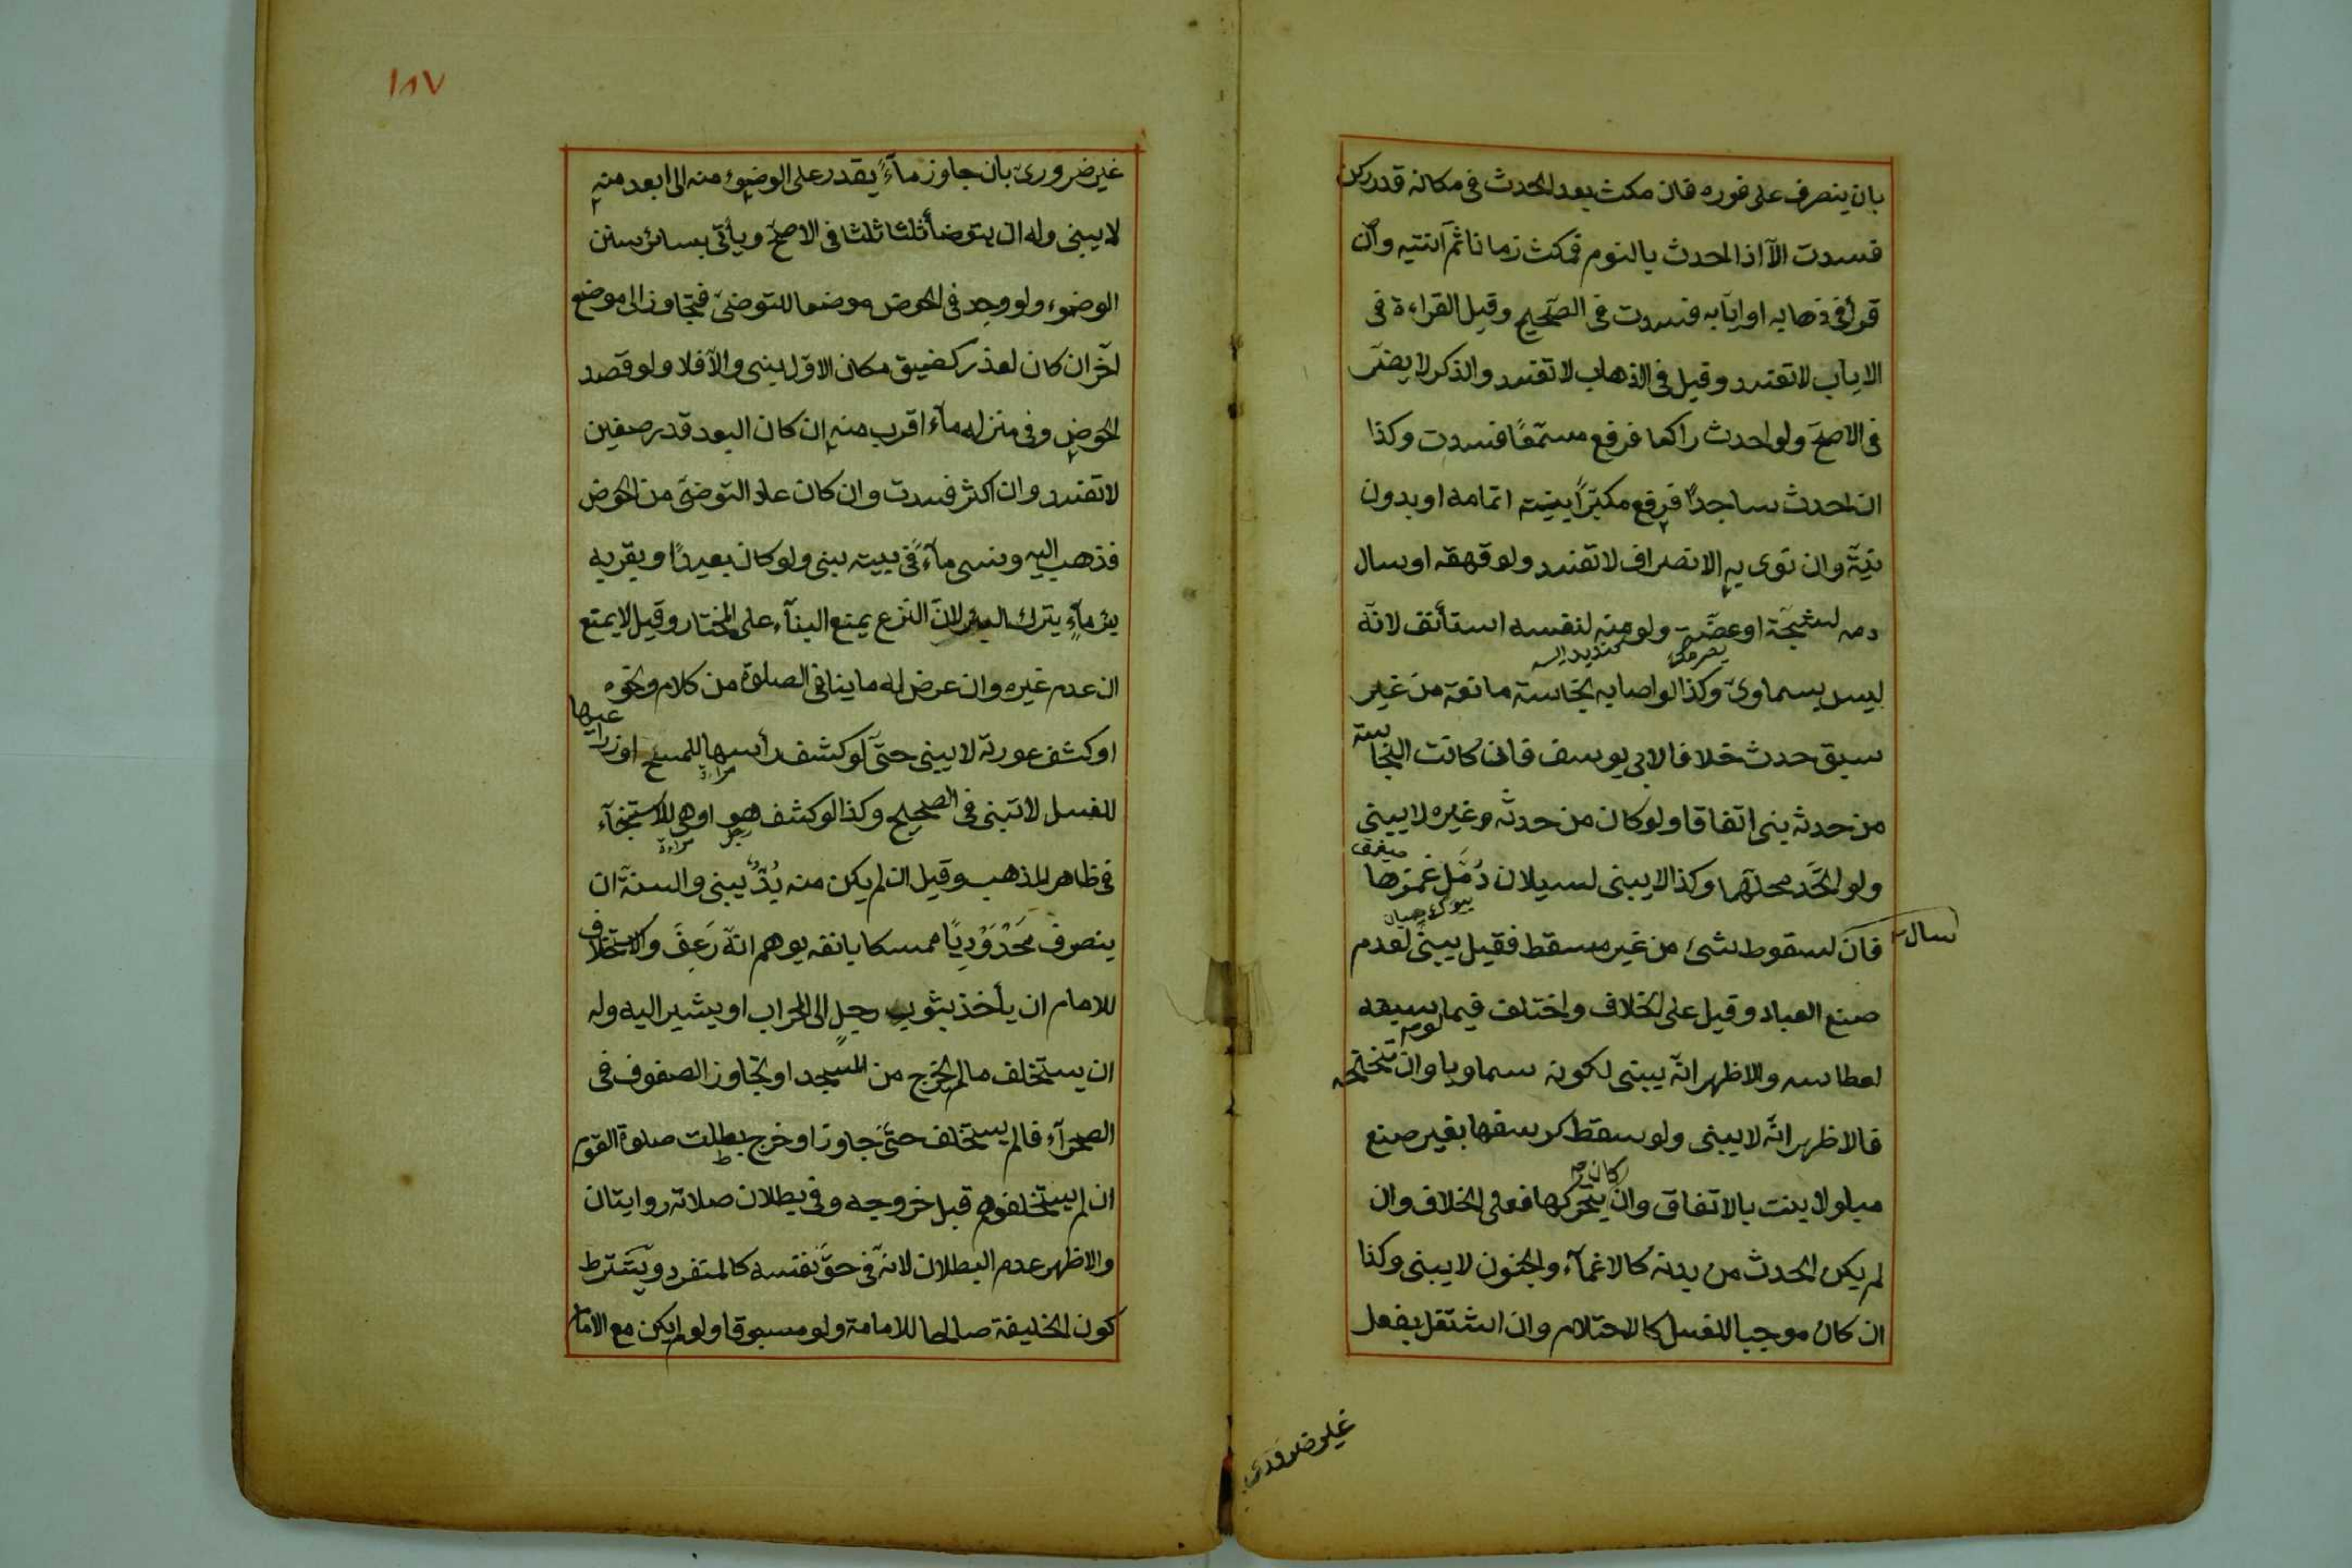 بان ينصرف على فوره فان مكث بعد الحدث فى مكانه قدر ركن
فسدت الّا اذا احدث بالنوم فمكث زمانا ثمّ انتبه وان
قرأ فى ذهابه او ايابه فسدت فى الصّحيح وقيل القراءة فى
الاياب لا تفسد وقيل فى الذهاب لا تفسد والذكر لا يضرّ
فى الاصحّ ولو احدث راكعا فرفع مسمّعًا فسدت وكذا
ان احدث ساجدًا فرفع مكبّرًا بنيته اتمامه او بدون
نيّة وان نوى به الانصراف لا تفسد ولو قهقه او سال
دمه لشجّة او عضّة ولو منه لنفسه استأنف لانّه
ليس بسماوىّ وكذا لو اصابه نجاسة مانعة من غير
سبق حدث خلافا لابى يوسف فان كانت النجاسة
من حدثه بنى اتفاقا ولو كان من حدثه وغيره لا يبنى
ولو اتّحد محلّهما وكذا لا يبنى لسيلان دُمّل غمزها
سال
فان لسقوط شئ من غير مسقط فقيل يبنى لعدم
صنع العباد وقيل على الخلاف واختلف فيما سبقه
لعطاسه والاظهر انّه يبنى لكونه سماويا وان تنحنحه
فالاظهر انّه لا يبنى ولو سقط كرسفها بغير صنع
كان
مبلولا بنت بالاتفاق وان بتحركها فعلى الخلاف وان
لم يكن الحدث من بدنه كالاغمآء والجنون لا يبنى وكذا
ان كان موجبا للغسل كالاحتلام وان اشتغل بفعل
غير ضرورى
١٨٧
غير ضرورىّ بان جاوز مآءً يقدر على الوضوء منه الى ابعد منه
لا يبنى وله ان يتوضأ ثلثا ثلثا فى الاصحّ ويأتى بسائر سنن
الوضوء ولو وجد فى الحوض موضعا للتوضىّ فتجاوز الى موضع
آخر ان كان لعذر كضيق مكان الاوّل يبنى والّا فلا ولو قصد
الحوض وفى منزله مآء اقرب منه ان كان البعد قدر صفين
لا تفسد وان اكثر فسدت وان كان عاد التوضّى من الحوض
فذهب اليه ونسى مآءً فى بيته يبنى ولو كان بعيدًا وبقربه
بئر مآءٍ يترك البئر لانّ النّزع يمنع البنآء على المختار وقيل لا يمنع
ان عدم غيره وان عرض له ما ينافى الصلوة من كلام ونحوه
او كشف عورة لا يبنى حتّى لو كشف رأسها للمسح او ذراعيها
مراءة
للغسل لا تبنى فى الصحيح وكذا لو كشف هو او هى للاستنجآء
مراءة
فى ظاهر المذهب وقيل ان لم يكن منه بُدٌّ يبنى والسنة ان
ينصرف مَحْدَوْدِبًا ممسكا بانفه يوهم انّه رَعِفَ والاستخلاف
للامام ان يأخذ بثوب رجل الى المحراب او يشير اليه وله
ان يستخلف ما لم يخرج من المسجد او تجاوز الصفوف فى
الصحرآء فالم يستخلف حتّى جاوز او خرج بطلت صلوة القوم
ان لم يستخلفوهم قبل خروجه وفى بطلان صلاته روايتان
والاظهر عدم البطلان لانّه فى حقّ نفسه كالمنفرد ويشترط
كون الخليفة صالحا للامامة ولو مسبوقا ولو لم يكن مع الامام